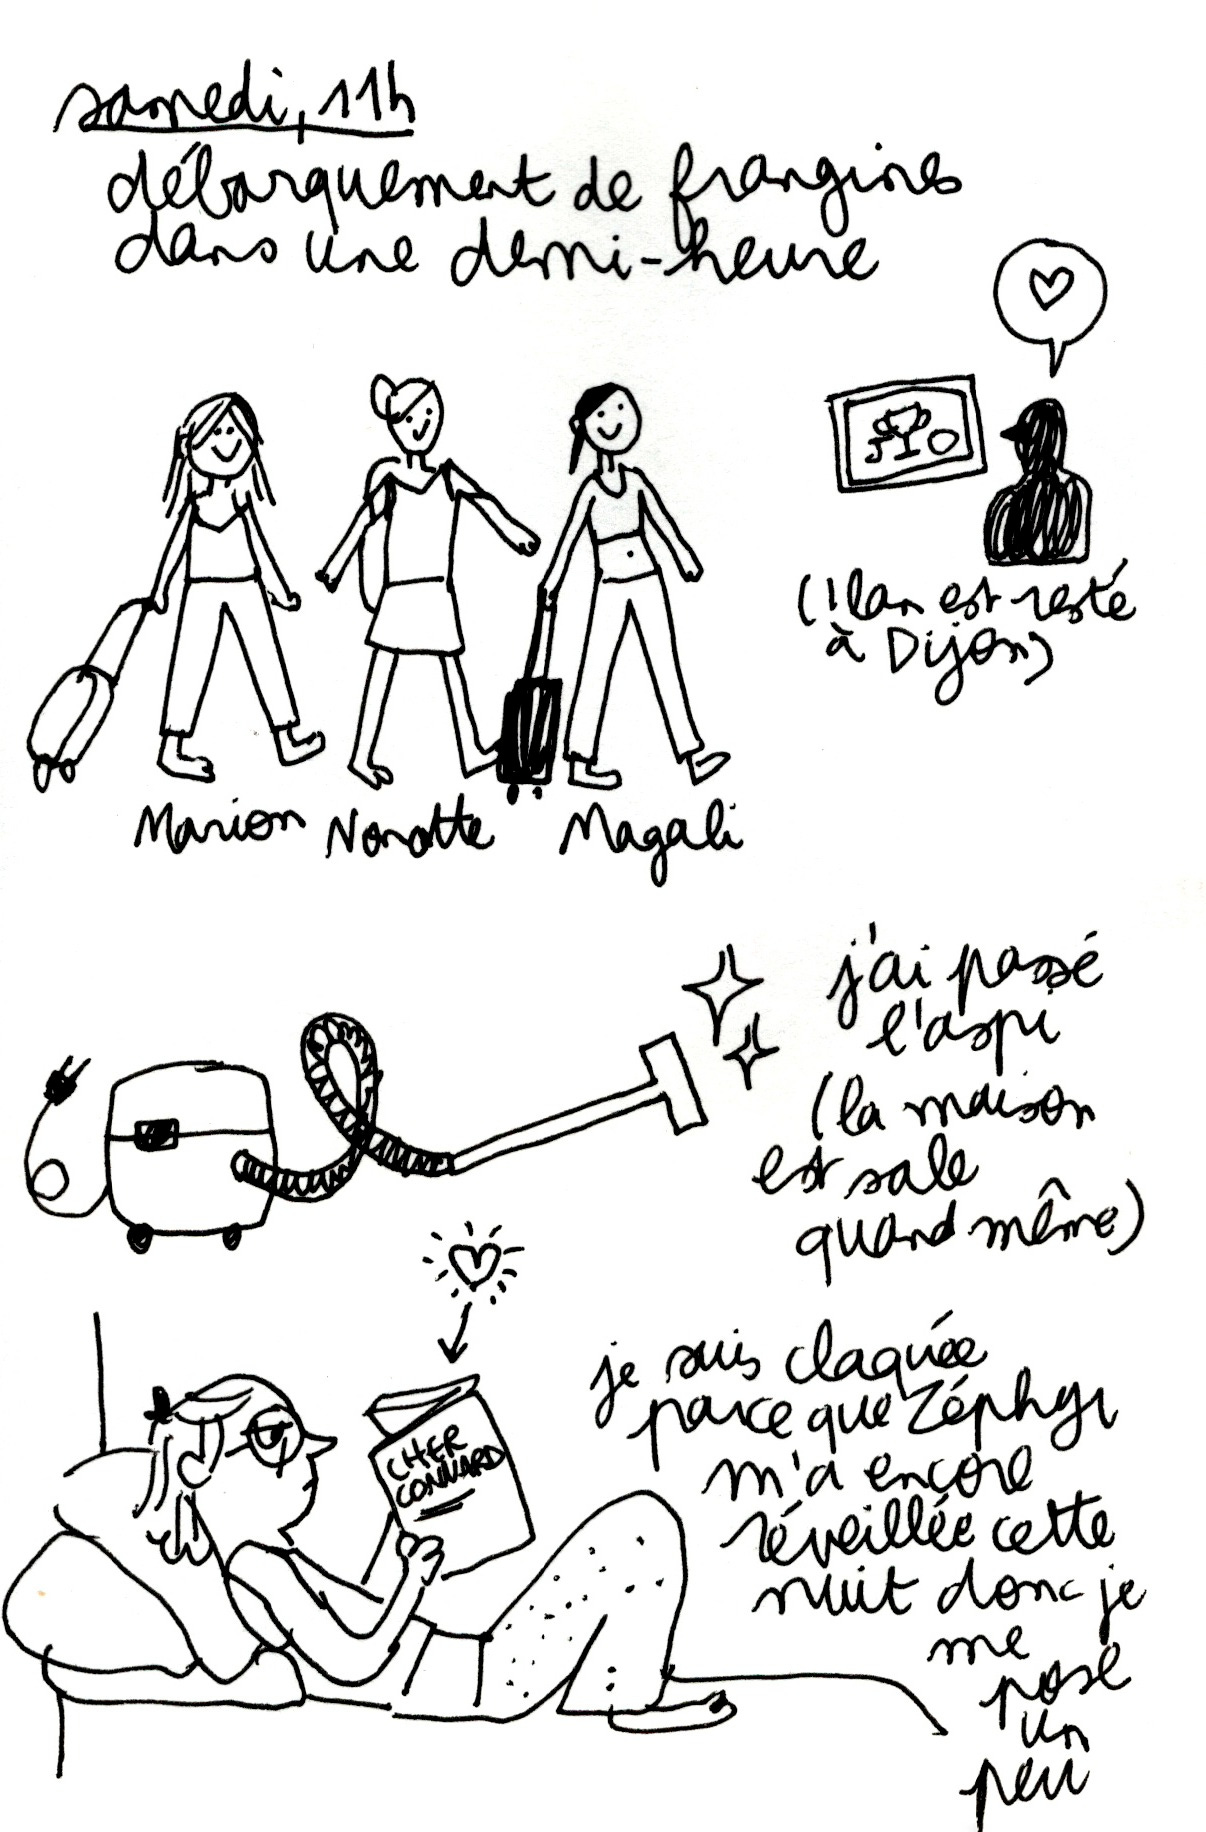 samedi, 11h
débarquement de frangines
dans une demi-heure
JO
(Ilan est resté
à Dijon)
Marion Nonotte Magali
j'ai passé
l'aspi
(la maison
est sale
quand même)
CHER
CONNARD
je suis claquée
parce que Zéphyr
m'a encore
réveillée cette
nuit donc je
me
pose
un
peu